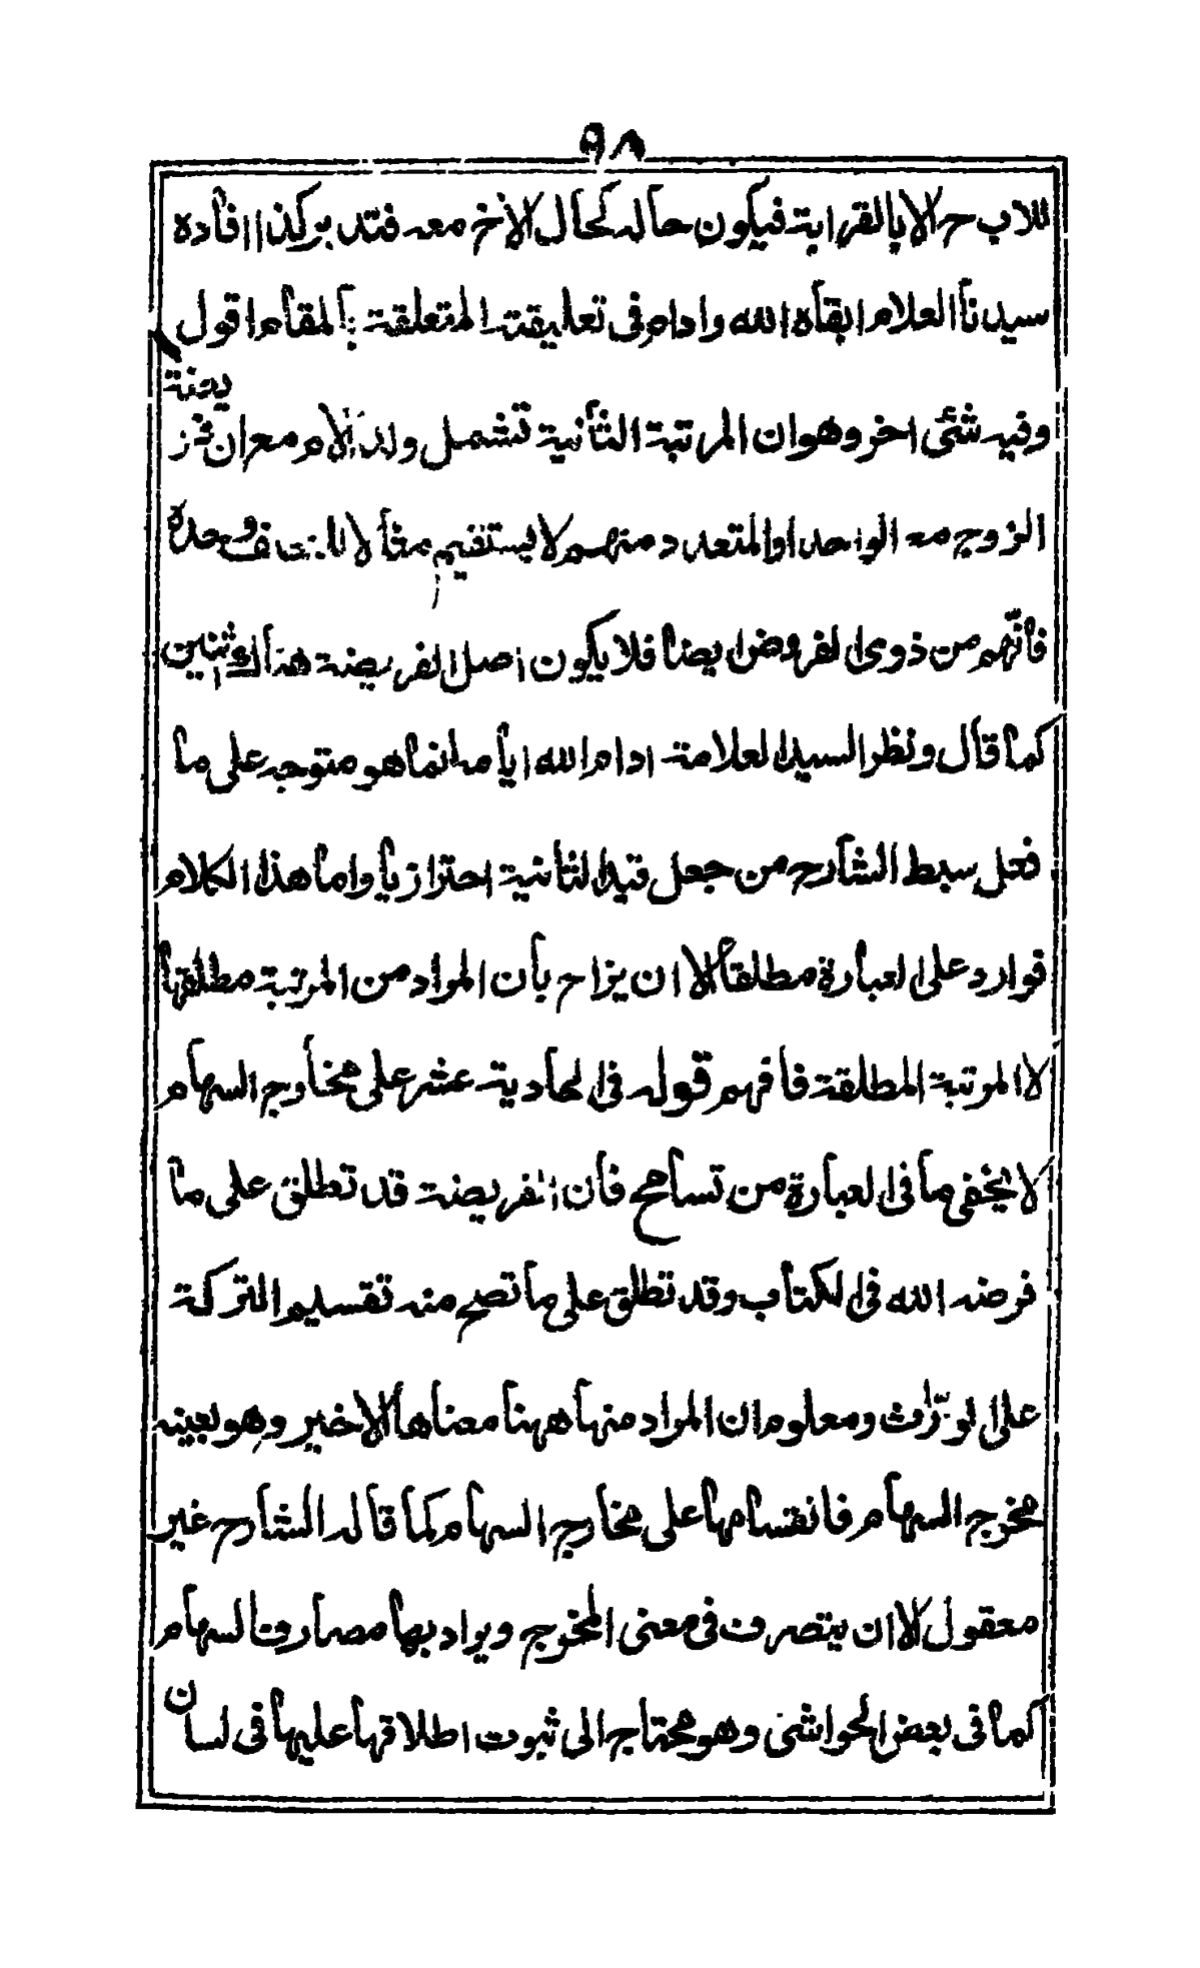 ٩٨
للاب ح الا بالقرابة فيكون حاله كحال الاخر معه فتدبر كذا افاده
سيدنا العلام ابقاه الله وادام فى تعليقته المتعلقة بالمقام اقول
وفيه شئ اخر وهو ان المرتبة الثانية تشمل ولد الام مع ان
الزوج مع الواحد او المتعدد منهم لا يستقيم مثالا للنصف وحده
فانهم من ذوى الفروض ايضا فلا يكون اصل الفريضة هناك اثنين
كما قال ونظر السيد العلامة ادام الله ايامه انما هو متوجه على ما
فعل سبط الشارح من جعل قيد الثانية احترازيا واما هذا الكلام
فوارد على العبارة مطلقا الا ان يزاح بان المراد من المرتبة مطلقها
لا المرتبة المطلقة فافهم قوله فى الحادية عشر على مخارج السهام
لا يخفى ما فى العبارة من تسامح فان الفريضة قد تطلق على ما
فرضه الله فى الكتاب وقد تطلق على ما تصح منه تقسيم التركة
على الورّاث ومعلوم ان المراد منها ههنا معناها الاخير وهو بعينه
مخرج السهام فانقسامها على مخارج السهام كما قاله الشارح غير
معقول الا ان يتصرف فى معنى المخرج ويراد بها مصارف السهام
كما فى بعض الحواشى وهو محتاج الى ثبوت اطلاقها عليها فى لسان